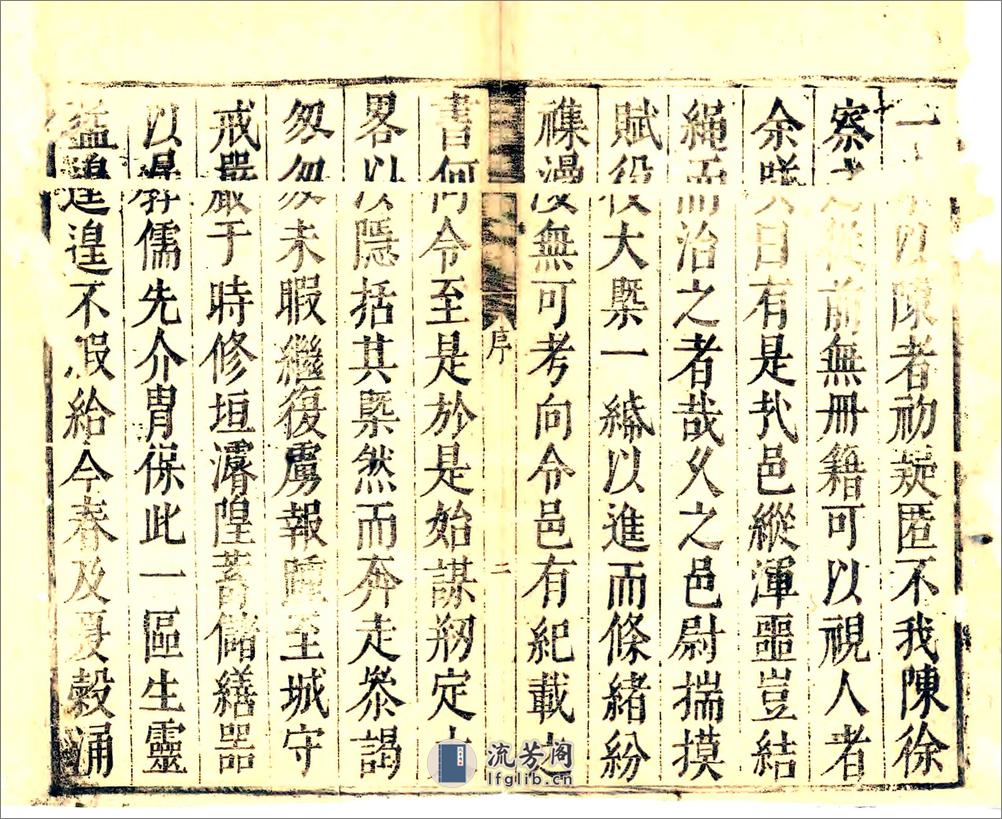 一以陳者初疑匿不我陳徐
察之從前無冊籍可以視人者
余嘆曰有是㢤邑縱渾噩豈結
繩而治之者哉久之邑尉揣摸
賦役大槩一綹以進而條緒紛
襍漫無可考向令邑有紀載之
書何令至是於是始謀剏定大
畧以隱括其槩然而奔走叅謁
匆匆未暇繼復虜報踵至城守
戒嚴于時修垣濬隍蓄儲繕器
以孱儒先介胄保此一區生靈
猛遑遑不暇給今春及夏穀涌
序
二
流芳阁
lfglib.com